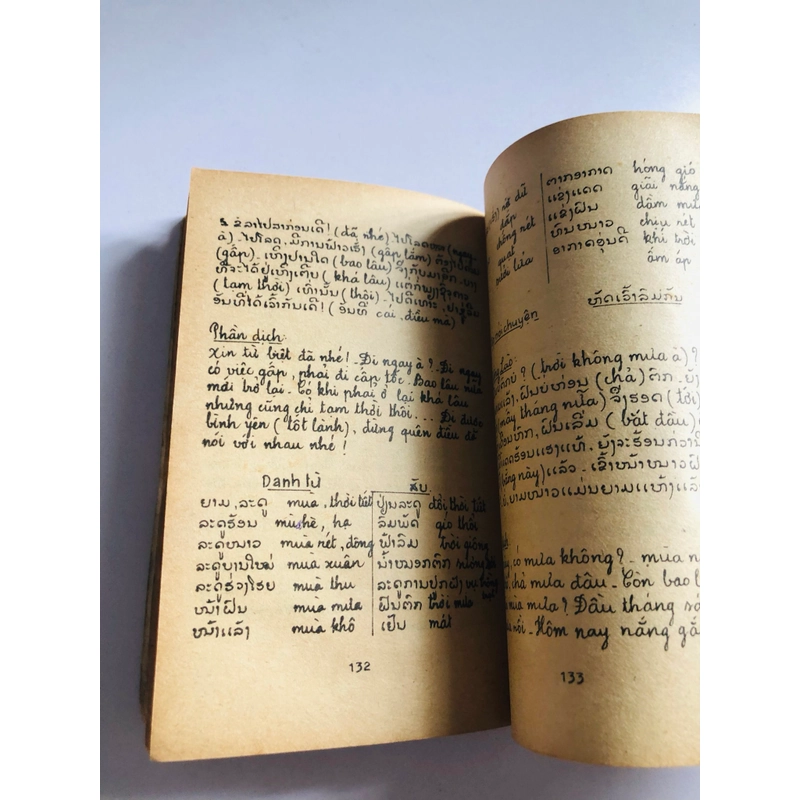 ຂໍລາໄປລາກ່ອນເດີ! (đã nhé) ໄປໂລດຫລາ (ngay
à). ໄປໂລດ, ມີການຟ້າວເຮັ່ງ (gấp lắm) ຕ້ອງໄປດ່ວນ
(gấp). ເຫິງປານໃດ (bao lâu) ຈຶ່ງກັບມາອີກ. ບາງ
ທີຈະໄດ້ຢູ່ເຫິງເຕີບ (khá lâu) ແຕ່ກໍພຽງຊົ່ວຄາວ
(tạm thời) ເທົ່ານັ້ນ (thôi). ໄປດີເທາະ, ຢ່າລືມ
ອັນທີ່ໄດ້ເວົ້າກັນເດີ! (ອັນທີ່ cái, điều mà)
Phần dịch:
Xin từ biệt đã nhé! Đi ngay à? Đi ngay
có việc gấp, phải đi cấp tốc. Bao lâu nữa
mới trở lại. Có khi phải ở lại khá lâu
nhưng cũng chỉ tạm thời thôi... Đi được
bình yên (tốt lành), đừng quên điều đã
nói với nhau nhé!
Danh từ ສັບ
ຍາມ, ລະດູ mùa, thời tiết ປ່ຽນລະດູ đổi thời tiết
ລະດູຮ້ອນ mùa hè, hạ ລົມພັດ gió thổi
ລະດູຫນາວ mùa rét, đông ຟ້າລົມ trời giông
ລະດູບານໃຫມ່ mùa xuân ນ້ຳຫມອກຕົກ sương
ລະດູຮ່ວງໂຮຍ mùa thu ລະດູການປູກຝັງ vụ trồng
ຫນ້າຝົນ mùa mưa ຝົນຕົກ trời mưa
ຫນ້າແລ້ງ mùa khô ເຢັນ mát
132
nã dữ ຕາກອາກາດ hóng gió
đắp ແຂ່ງແດດ giãi nắng
chống rét ແຂ່ງຝົນ dầm mưa
quạt ທົນຫນາວ chịu rét
sưởi lửa ອາກາດອຸ່ນດີ khí trời
ấm áp
ຫັດເວົ້າລົມກັນ
nói chuyện
(trời không mưa à)?
ຝົນບໍ່ທ່ອນ (chả) ຕົກ. ຍັງ
(mấy tháng nữa) ຈຶ່ງຮອດ (tới)
ຝົນເລີ່ມ (bắt đầu)
ແດດຮ້ອນແຮງແທ້. ຍັງຈະຮ້ອນກວ່ານີ້
này) ແລ້ວ. ເຂົ້າຫນ້າຫນາວຝົນ
ຍາມຫນາວແມ່ນຍາມແຫ້ງແລ້ງ
có mưa không? - mùa
chả mưa đâu. - Còn bao
mùa mưa? Đầu tháng
rồi. - Hôm nay nắng gắt
133